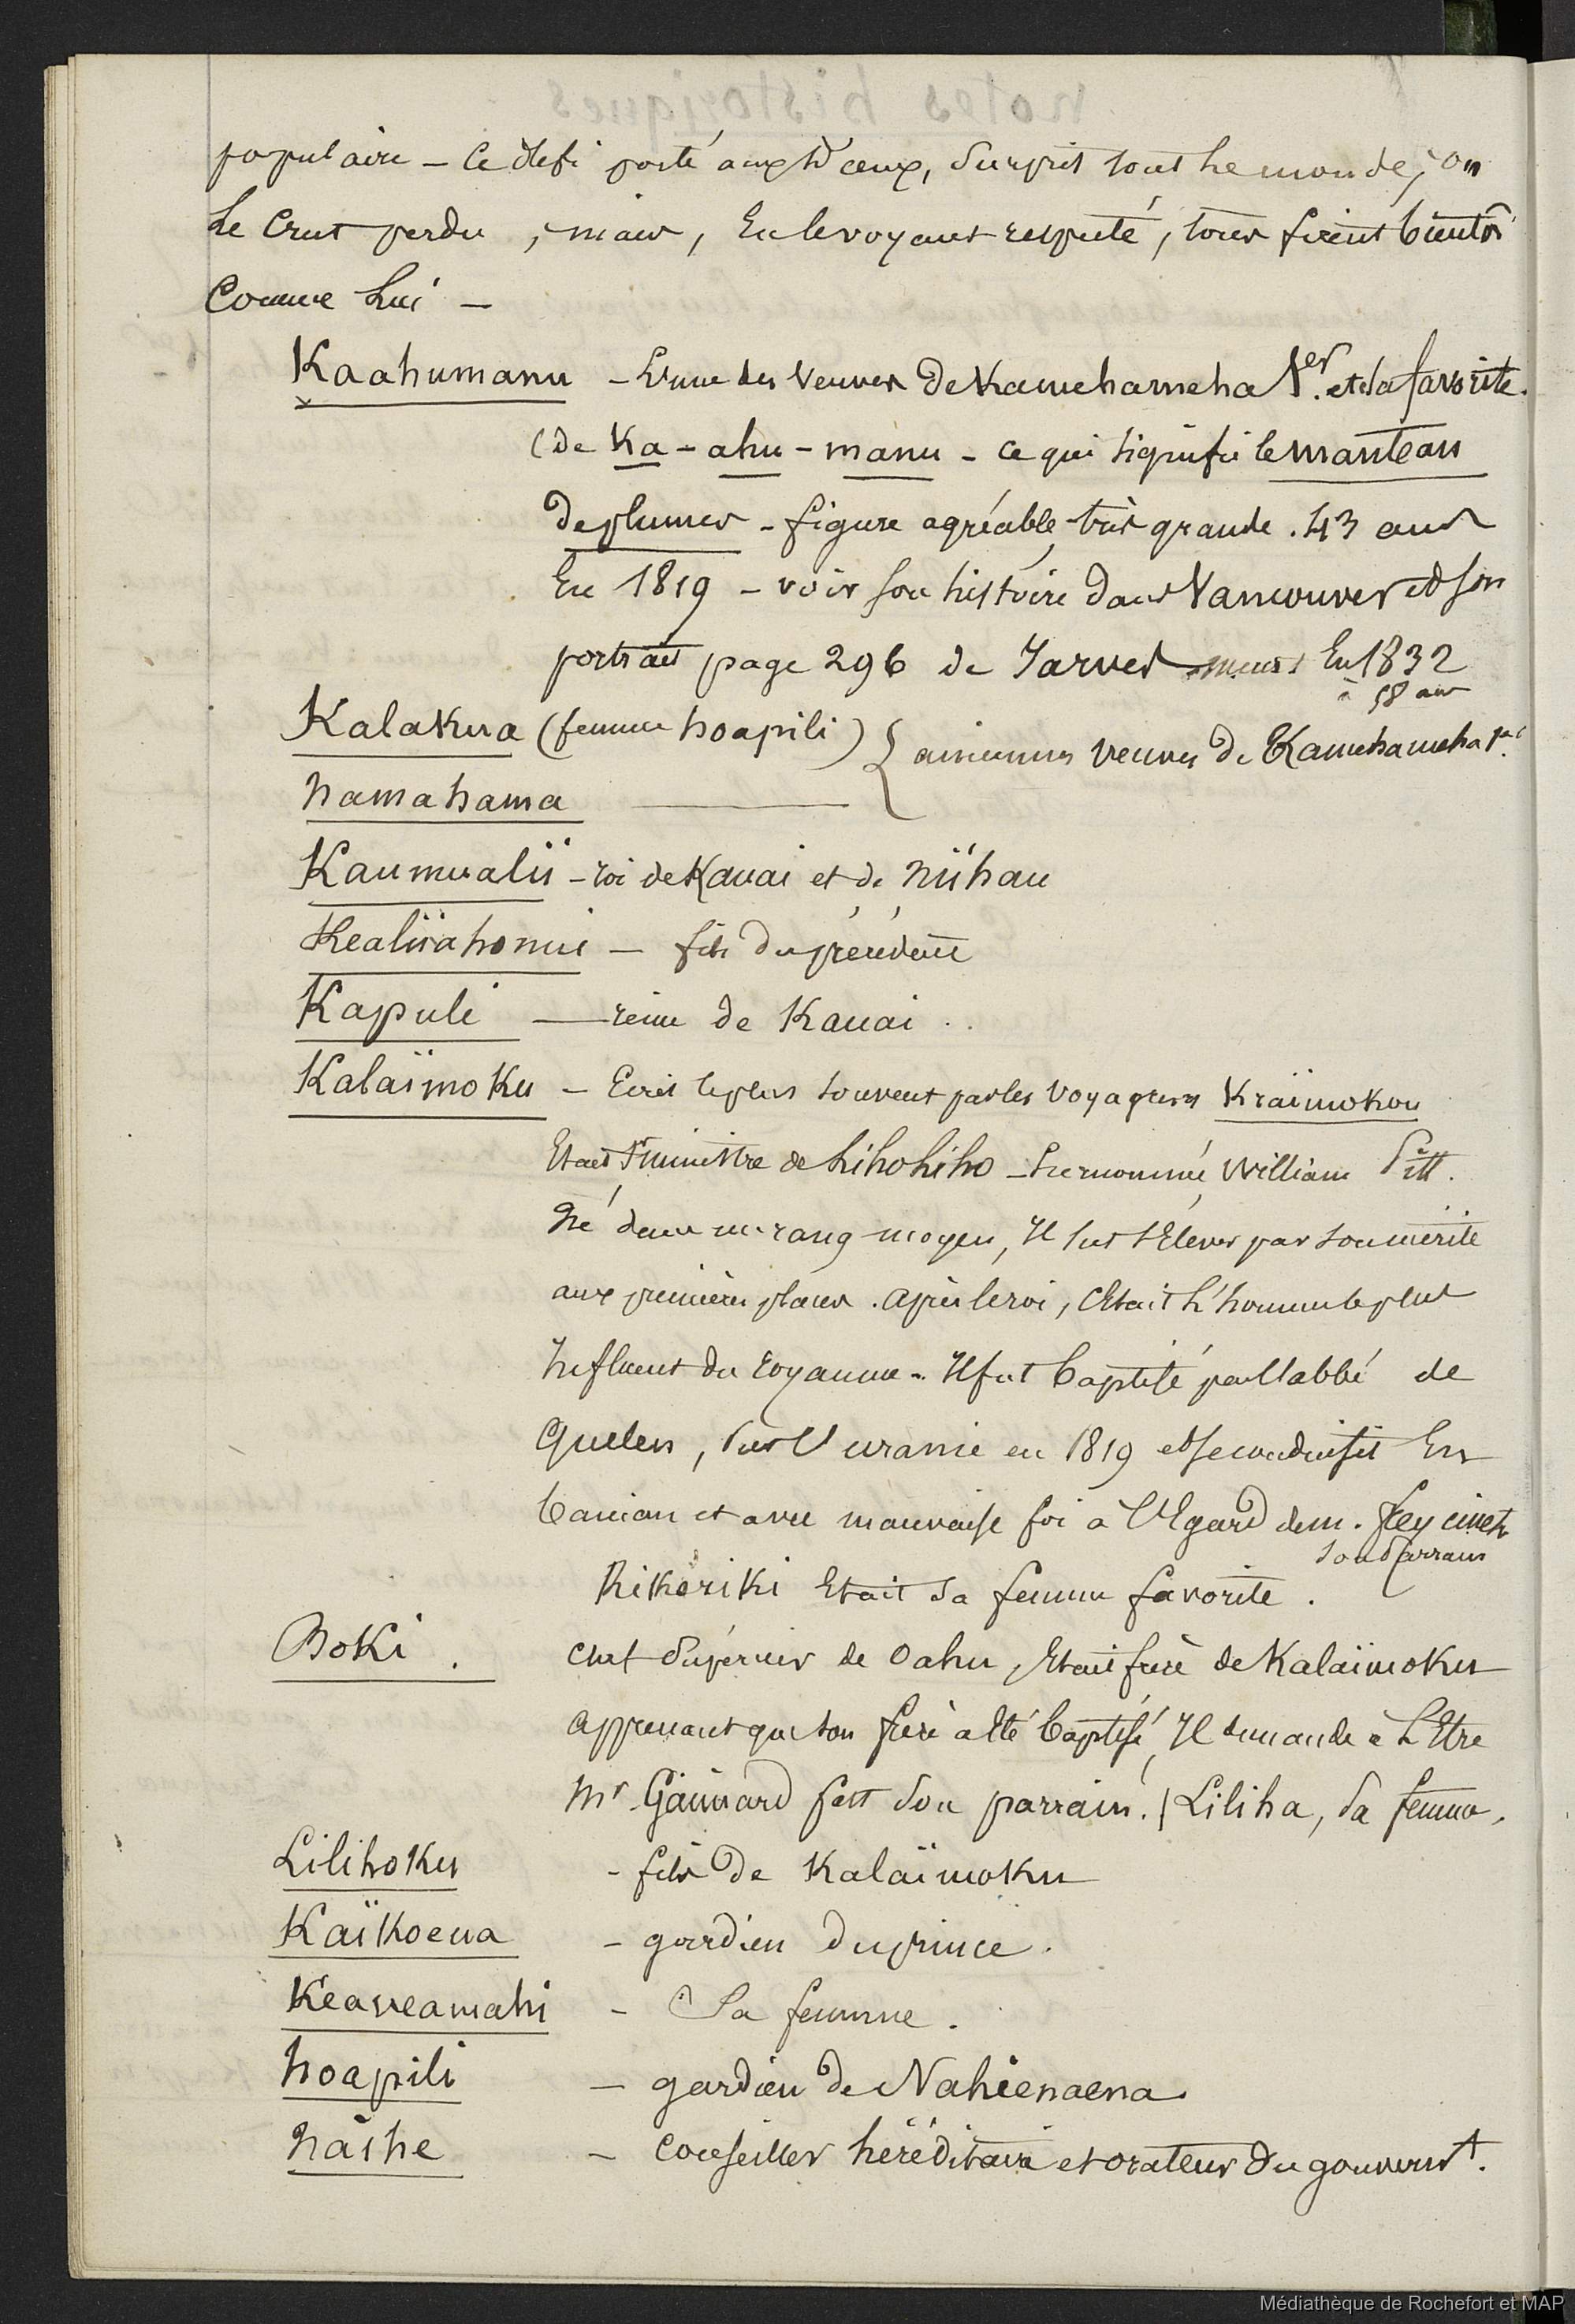 populaire – Ce defi porté aux Dieux, surprit tout le monde; on
le crut perdu, mais, en le voyant respecté, tous firent bientôt
comme lui –
Kaahumanu – L'une des veuves de Kamehameha 1er. et la favorite.
(de Ka-ahu-manu – ce qui signifie le manteau
de plumes – figure agréable, très grande. 43 ans
en 1819 – voir son histoire dans Vancouver et son
portrait page 296 de Jarves meurt en 1832
à 58 ans
Kalakua (femme hoapili) { anciennes veuves de Kamehameha 1er
namahama
Kaumualii – roi de Kauai et de niihau
Kealiiahonui – fils du précédent
Kapule – reine de Kauai.
Kalaïmoku – Ecrit le plus souvent par les voyageurs Kraïmokou
Etait 1er ministre de liholiho – surnommé William Pitt.
né dans un rang moyen, Il sut s'Elever par son mérite
aux premières places. après le roi, c'Etait l'homme le plus
influent du royaume. Il fut baptisé par l'abbé de
Quelen, sur l'uranie en 1819 et se conduisit en
et avec mauvaise foi à l'Egard de m. freycinet
son parrain
Rikeriki Etait sa femme favorite.
Boki. chef supérieur de Oahu, Etait frère de Kalaïmoku
apprenant que son frère a Eté baptisé, Il demande à l'Etre
Mr Gaimard fut son parrain. / Liliha, sa femme.
Lilihoku – fils de Kalaïmoku
Kaïkoewa – gardien du prince.
Keaweamahi – Sa femme.
hoapili – gardien de Nahienaena.
naihe – conseiller héréditaire et orateur du gouvernt.
Médiathèque de Rochefort et MAP